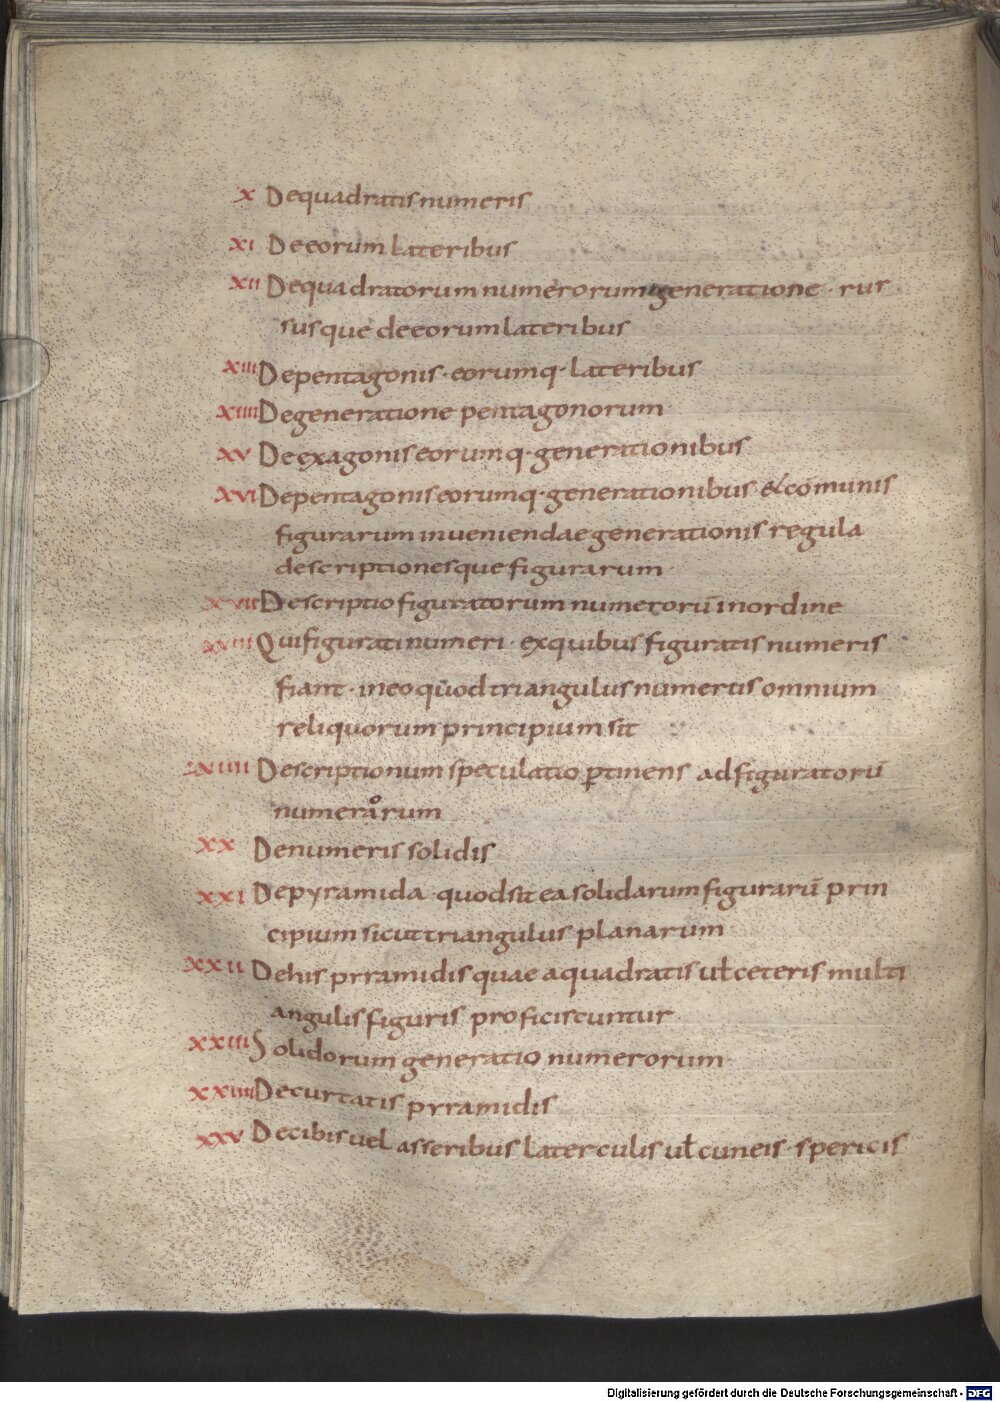 X De quadratis numeris
XI De eorum lateribus
XII De quadratorum numerorum generatione · rur
susque de eorum lateribus
XIII De pentagonis · eorumq· lateribus
XIIII De generatione pentagonorum
XV De exagonis eorumq· generationibus
XVI De pentagonis eorumq· generationibus · & comunis
figurarum inveniendae generationis regula
descriptionesque figurarum
XVII Descriptio figuratorum numerorū in ordine
XVIII Qui figurati numeri · ex quibus figuratis numeris
fiant · in eo quod triangulus numerus omnium
reliquorum principium sit
XVIIII Descriptionum speculatio ꝑtinens ad figuratorū
numeraorum
XX De numeris solidis
XXI De pyramida · quod sit ea solidarum figurarū prin
cipium sicut triangulus planarum
XXII De his prramidis quae a quadratis uł ceteris multi
angulis figuris proficiscuntur
XXIII Solidorum generatio numerorum
XXIIII De curtatis prramidis
XXV De cibis uel asseribus laterculis uł cuneis · spericis
Digitalisierung gefördert durch die Deutsche Forschungsgemeinschaft - DFG